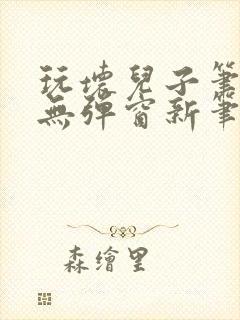 玩壞兒子筆
無彈窗新筆
森繪里